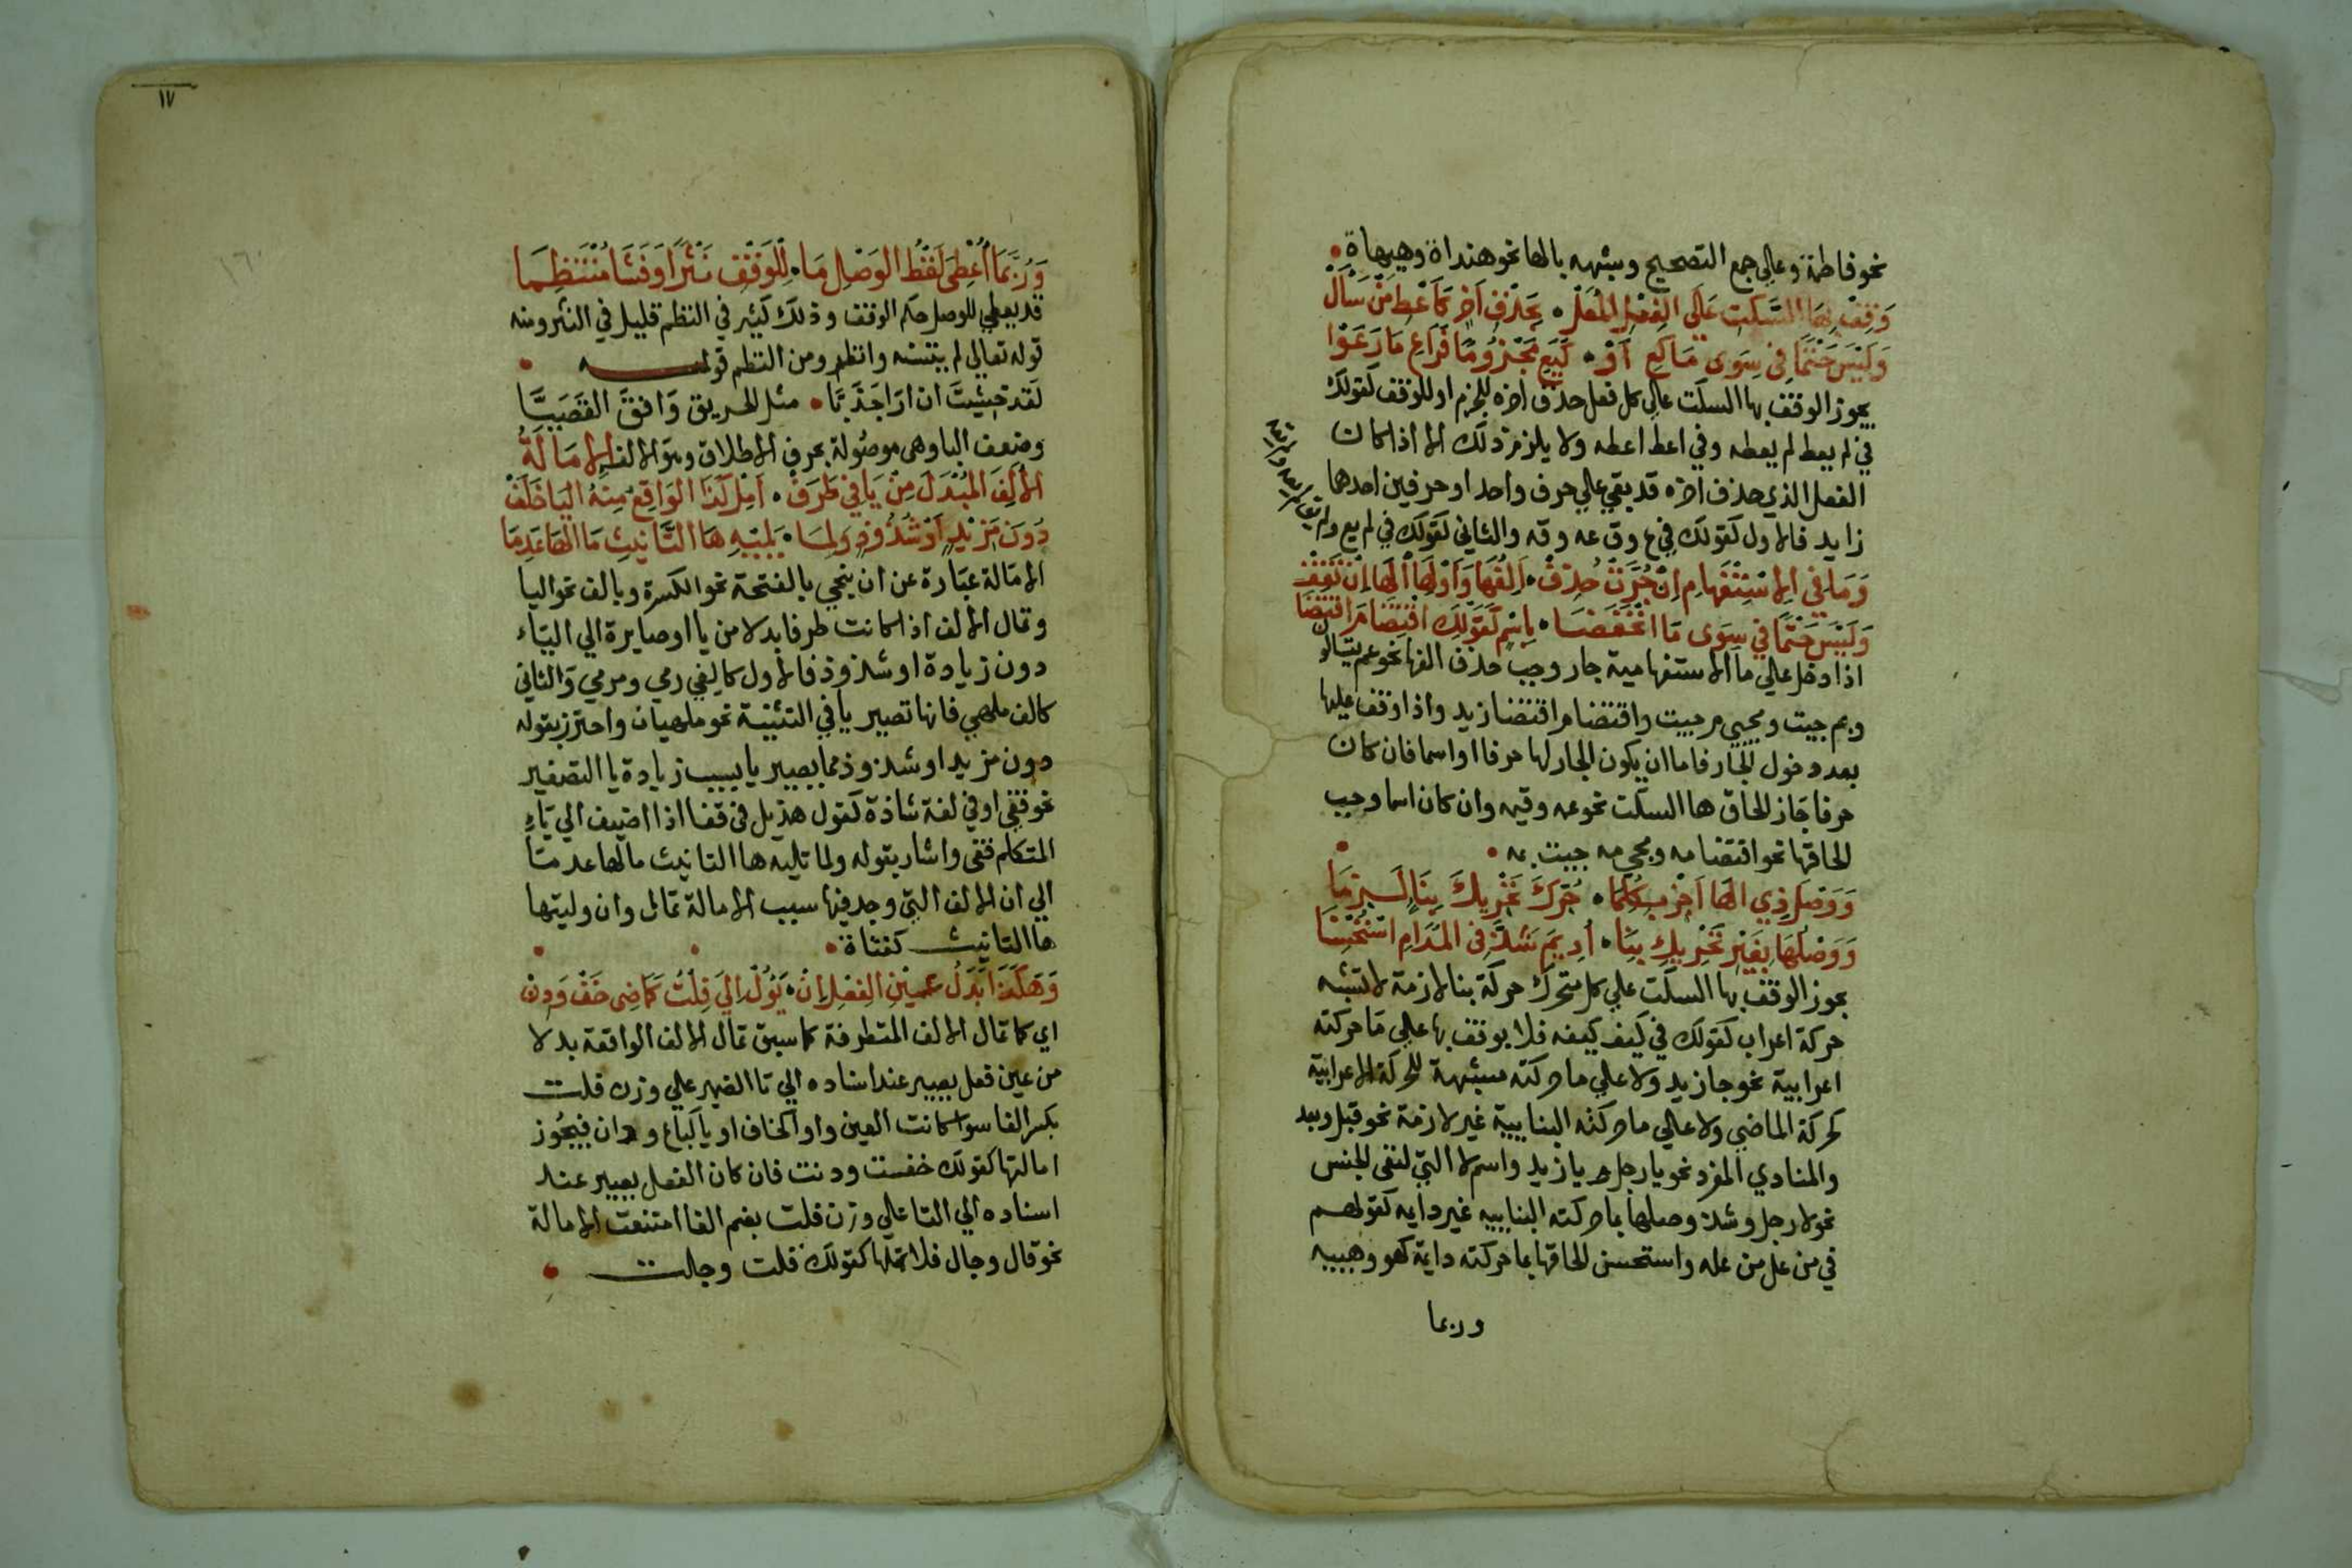 نحو فاطمة وعلي جمع التصحيح وشبهه بالها نحو هنداة وهيهاة
وَقِفْ بِهَا السَّكْتِ عَلَى الفِعْلِ المُعَلّ بِحَذْفِ آخِرٍ كَأَعْطِ مَنْ سَأَلْ
وَلَيْسَ حَتْمًا فِي سِوَى مَا كَعِ أَوْ كَيَعِ مَجْزُومًا فَرَاعِ مَا رَعَوْا
يجوز الوقف بها السكت علي كل فعل حذف اخره للجزم او للوقف كقولك
في لم يعط لم يعطه وفي اعط اعطه ولا يلزم ذلك الا اذا كان
الفعل الذي حذف اخره قد بقي علي حرف واحد او حرفين احدهما
زايد فالاول كقولك في ع وق عه وقه والثاني كقولك في لم يع ولم يق
وَمَا فِي الاسْتِفْهَامِ إِنْ جُرَّتْ حُذِفْ أَلِفُهَا وَأَوْلِهَا الهَا إِنْ تَقِفْ
وَلَيْسَ حَتْمًا فِي سِوَى مَا انْخَفَضَا بِاسْمٍ كَقَوْلِكَ اقْتِضَا مَ اقْتَضَا
اذا دخل علي ما الاستفهامية جار وجب حذف الفها نحو عم يتسالون
وبم جيت ومجي م جيت واقتضا م اقتضا زيد واذا وقف عليها
بعد دخول الجار فاما ان يكون الجار لها حرفا او اسما فان كان
حرفا جاز الحاق ها السكت نحو عمه وفيمه وان كان اسما وجب
الحاقها نحو اقتضا مه ومجي مه جيت به
وَوَصْلَ ذِي الهَا أَجِزْ بِكُلِّ مَا حُرِّكَ تَحْرِيكَ بِنَاءٍ لَزِمَا
وَوَصْلُهَا بِغَيْرِ تَحْرِيكِ بِنَا أُدِيمَ شَذَّ فِي المُدَامِ اسْتُحْسِنَا
يجوز الوقف بها السكت علي كل متحرك حركة بنا لازمة لا تشبه
حركة اعراب كقولك في كيف كيفه فلا يوقف بها علي ما حركته
اعرابية نحو جا زيد ولا علي ما حركته مشبهة للحركة الاعرابية
كحركة الماضي ولا علي ما حركته البنايية غير لازمة نحو قبل وبعد
والمنادي المفرد نحو يا رجل و يا زيد واسم لا التي لنفي الجنس
نحو لا رجل وشذ وصلها بما حركته البناييه غير دايمه كقولهم
في من عل من عله واستحسن الحاقها بما حركته دايمة كهو وهييه
وربما
١٧
وَرُبَّمَا أُعْطِيَ لَفْظُ الوَصْلِ مَا لِلْوَقْفِ نَثْرًا وَفَشَا مُنْتَظِمَا
قد يعطي للوصل حكم الوقف وذلك كثير في النظم قليل في النثر ومنه
قوله تعالي لم يتسنه وانظر ومن النظم قوله
لَقد خشِيتَ ان ارَا جَدَبّا مثل الحريق وَافقَ القصَبَّا
وضعف البا وهي موصولة بحرف الاطلاق وهو الالف الإِمَالَةُ
الأَلِفَ المُبْدَلَ مِنْ يَا فِي طَرَفْ أَمِلْ كَذَا الوَاقِعُ مِنْهُ اليَا خَلَفْ
دُونَ مَزِيدٍ أَوْ شُذُوذٍ وَلِمَا يَلِيهِ هَا التَّأْنِيثِ مَا الهَا عَدِمَا
الامالة عبارة عن ان ينحي بالفتحة نحو الكسرة وبالف نحو اليا
وتمال الالف اذا كانت طرفا بدلا من يا او صايرة الي الياء
دون زيادة او شذوذ فالاول كالفي رمي ومرمي والثاني
كالف ملهي فانها تصير يا في التثنية نحو ملهيان واحترز بقوله
دون مزيد او شذوذ مما يصير يا بسبب زيادة يا التصغير
نحو قفي او في لغة شاذة كقول هذيل في قفا اذا اضيف الي ياء
المتكلم قفي واشار بقوله ولما تليه ها التانيث ما الها عدما
الي ان الالف التي وجد فيها سبب الامالة تمال وان وليتها
ها التانيث كفتاة
وَهَكَذَا بَدَلُ عَيْنِ الفِعْلِ إِنْ يَؤُلْ إِلَى فِلْتُ كَمَاضِي خَفْ وَدِنْ
اي كما تمال الالف المتطرفة كما سبق تمال الالف الواقعة بدلا
من عين فعل يصير عند اسناده الي تا الضمير علي وزن فلت
بكسر الفا سوا كانت العين واوا كخاف او يا كباع ودان فيجوز
امالتها كقولك خفت ودنت فان كان الفعل يصير عند
اسناده الي التا علي وزن فلت بضم الفا امتنعت الامالة
نحو قال وجال فلا تملها كقولك قلت وجلت